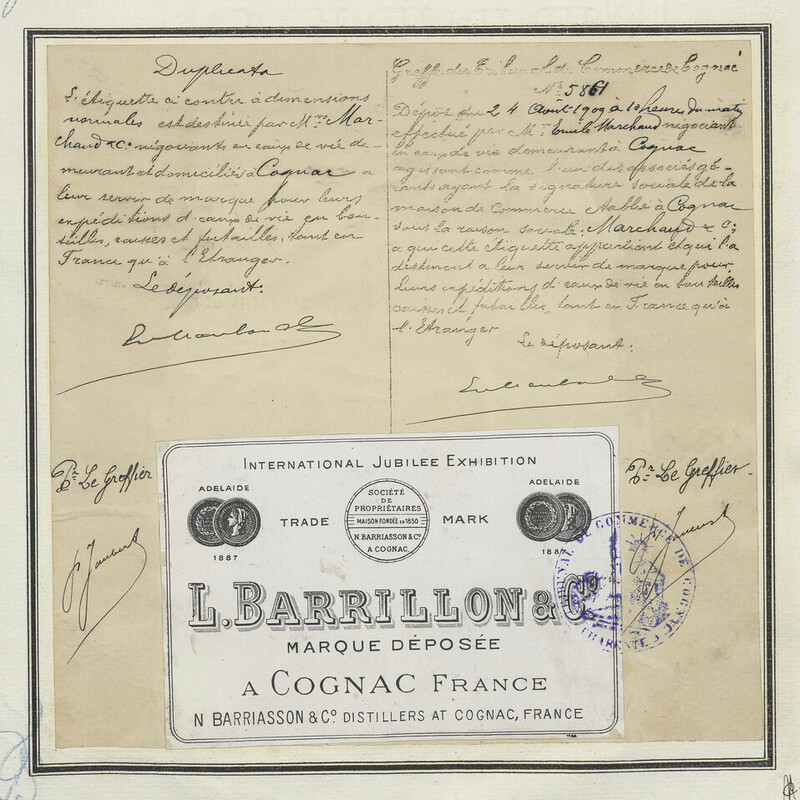 Duplicata
L'étiquette ci contre à dimensions
normales est destinée par Mrs Mar-
chaud & Co négociants en eaux de vie de-
meurant et domiciliés à Cognac a
leur servir de marque pour leurs
expéditions d'eaux de vie en bou-
teilles, caisses et futailles, tant en
France qu'à l'Etranger.
Le déposant:
Pr Le Greffier
Greffe du Tribunal de Commerce de Cognac
No 5861
Dépôt du 24 Août 1909 à 10 heures du matin
effectué par Mr Emile Marchaud négociant
en eaux de vie demeurant à Cognac
agissant comme l'un des associés gé-
rants ayant la signature sociale de la
maison de Commerce établie à Cognac
sous la raison sociale: Marchaud & Co.
a qui cette étiquette appartient et qui la
destinent a leur servir de marque pour
leurs expéditions d'eaux de vie en bouteilles
caisses et futailles, tant en France qu'à
l'Etranger
Le déposant:
Pr Le Greffier.
INTERNATIONAL JUBILEE EXHIBITION
ADELAIDE
1887
TRADE
SOCIÉTÉ
DE
PROPRIÉTAIRES
MAISON FONDÉE EN 1850
N. BARRIASSON & Co
A COGNAC
MARK
ADELAIDE
1887
L. BARRILLON & Co
MARQUE DÉPOSÉE
A COGNAC FRANCE
N BARRIASSON & Co DISTILLERS AT COGNAC, FRANCE
TRIBUNAL DE COMMERCE DE COGNAC
CHARENTE